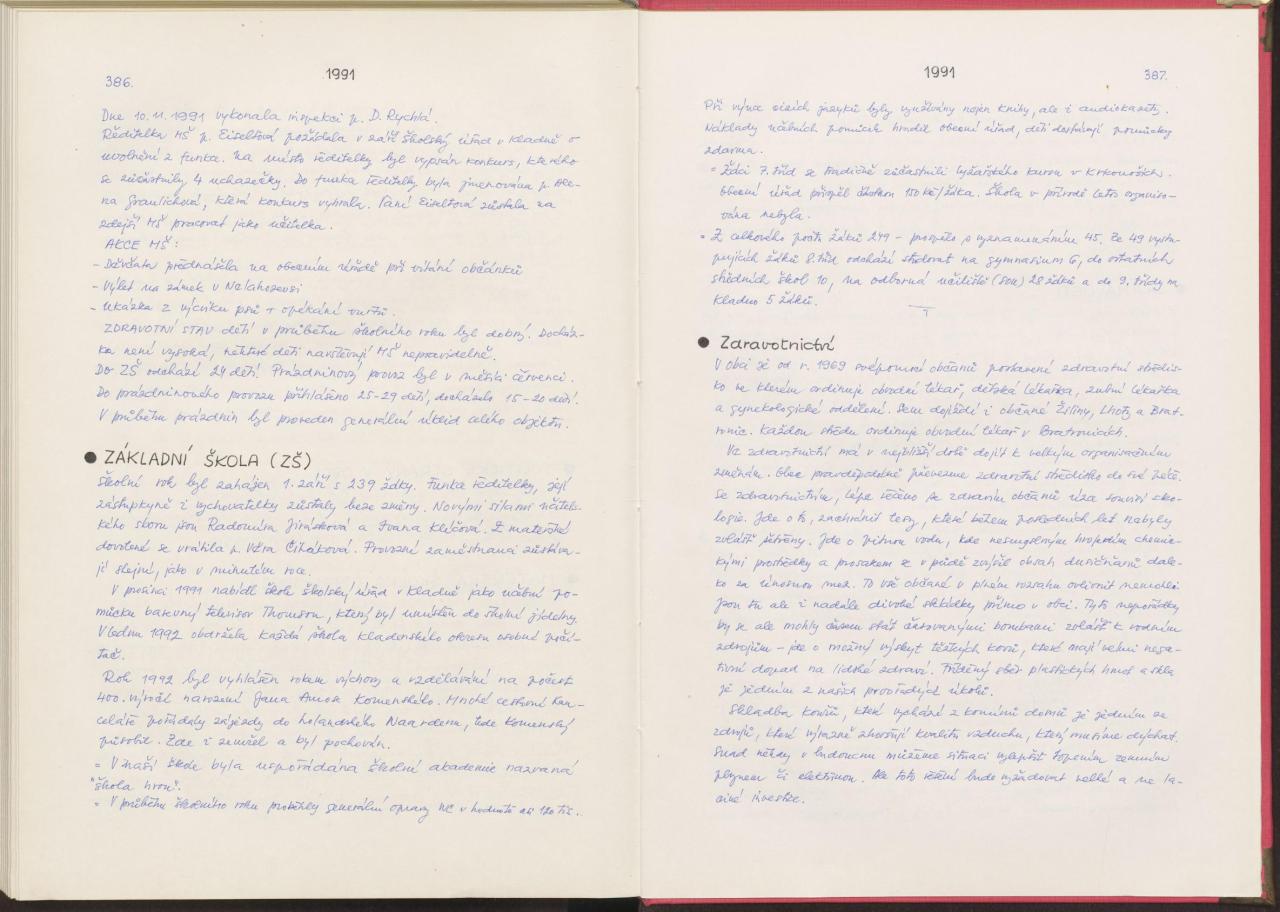 386.
1991
Dne 10.11.1991 vykonala inspekci p. D. Rychlá.
Ředitelka MŠ p. Eiseltová požádala v září Školský úřad v Kladně o
uvolnění z funkce. Na místo ředitelky byl vypsán konkurs, kterého
se zúčastnily 4 uchazečky. Do funkce ředitelky byla jmenována p. Ale-
na Graulichová, která konkurs vyhrála. Paní Eiseltová zůstala na
zdejší MŠ pracovat jako učitelka.
AKCE MŠ:
- Děvčata přednášela na obecním úřadě při vítání občánků
- Výlet na zámek v Nelahozevsi
- Ukázka z výcviku psů + opékání vuřtů.
ZDRAVOTNÍ STAV dětí v průběhu školního roku byl dobrý. Docház-
ka není vysoká, některé děti navštěvují MŠ nepravidelně.
Do ZŠ odchází 24 dětí. Prázdninový provoz byl v měsíci červenci.
Do prázdninového provozu přihlášeno 25-29 dětí, docházelo 15-20 dětí.
V průběhu prázdnin byl proveden generální úklid celého objektu.
● ZÁKLADNÍ ŠKOLA (ZŠ)
Školní rok byl zahájen 1. září s 239 žáky. Funkce ředitelky, její
zástupkyně i vychovatelky zůstaly beze změny. Novými silami učitels-
kého sboru jsou Radomíra Jirásková a Ivana Klíčová. Z mateřské
dovolené se vrátila p. Věra Čiháková. Provozní zaměstnanci zůstáva-
jí stejní, jako v minulém roce.
V prosinci 1991 nabídl škole školský úřad v Kladně jako učební po-
můcku barevný televisor Thomson, který byl umístěn do školní jídelny.
V lednu 1992 obdržela každá škola kladenského okresu osobní počí-
tač.
Rok 1992 byl vyhlášen rokem výchovy a vzdělávání na počest
400. výročí narození Jana Amose Komenského. Mnohé cestovní kan-
celáře pořádaly zájezdy do holandského Naardenu, kde Komenský
působil. Zde i zemřel a byl pochován.
= V naší škole byla uspořádána školní akademie nazvaná
"Škola hrou".
= V průběhu školního roku proběhly generální opravy WC v hodnotě asi 120 tis.
1991
387.
Při výuce cizích jazyků byly využívány nejen knihy, ale i audiokazety.
Náklady učebních pomůcek hradil obecní úřad, děti dostávají pomůcky
zdarma.
= Žáci 7. tříd se tradičně zúčastnili lyžařského kursu v Krkonoších.
Obecní úřad přispěl částkou 150 Kč/žáka. Škola v přírodě letos organiso-
vána nebyla.
= Z celkového počtu žáků 249 - prospělo s vyznamenáním 45. Ze 49 vystu-
pujících žáků 8. tříd odchází studovat na gymnasium 6, do ostatních
středních škol 10, na odborná učiliště (SOU) 28 žáků a do 9. třídy na
Kladno 5 žáků.
● Zdravotnictví
V obci je od r. 1969 svépomocí občanů postavené zdravotní středis-
ko ve kterém ordinuje obvodní lékař, dětská lékařka, zubní lékařka
a gynekologické oddělení. Sem dojíždí i občané Žiliny, Lhoty a Brat-
ronic. Každou středu ordinuje obvodní lékař v Bratronicích.
Ve zdravotnictví má v nejbližší době dojít k velkým organisačním
změnám. Obec pravděpodobně převezme zdravotní středisko do své péče.
Se zdravotnictvím, lépe řečeno se zdravím občanů úzce souvisí eko-
logie. Jde o to, zachránit lesy, které během posledních let nabyly
zvlášť Jde o pitnou vodu, kde nesmyslným hnojením chemic-
kými prostředky a prosakem se v půdě zvýšil obsah dusičnanů dale-
ko za únosnou mez. To vše občané v plném rozsahu ovlivnit nemohli.
Jsou tu ale i nadále divoké skládky přímo v obci. Tyto nepořádky
by se ale mohly časem stát časovanými bombami zvlášť k vodním
zdrojům - jde o možný výskyt těžkých kovů, které mají velmi nega-
tivní dopad na lidské zdraví. Tříděný sběr plastických hmot a skla
je jedním z našich prvořadých úkolů.
Skladba kouřů, které vychází z komínů domů je jedním ze
zdrojů, které výrazně zhoršují kvalitu vzduchu, který musíme dýchat.
Snad někdy v budoucnu můžeme situaci vylepšit topením zemním
plynem či elektřinou. Ale toto řešení bude vyžadovat velké a ne la-
ciné investice.